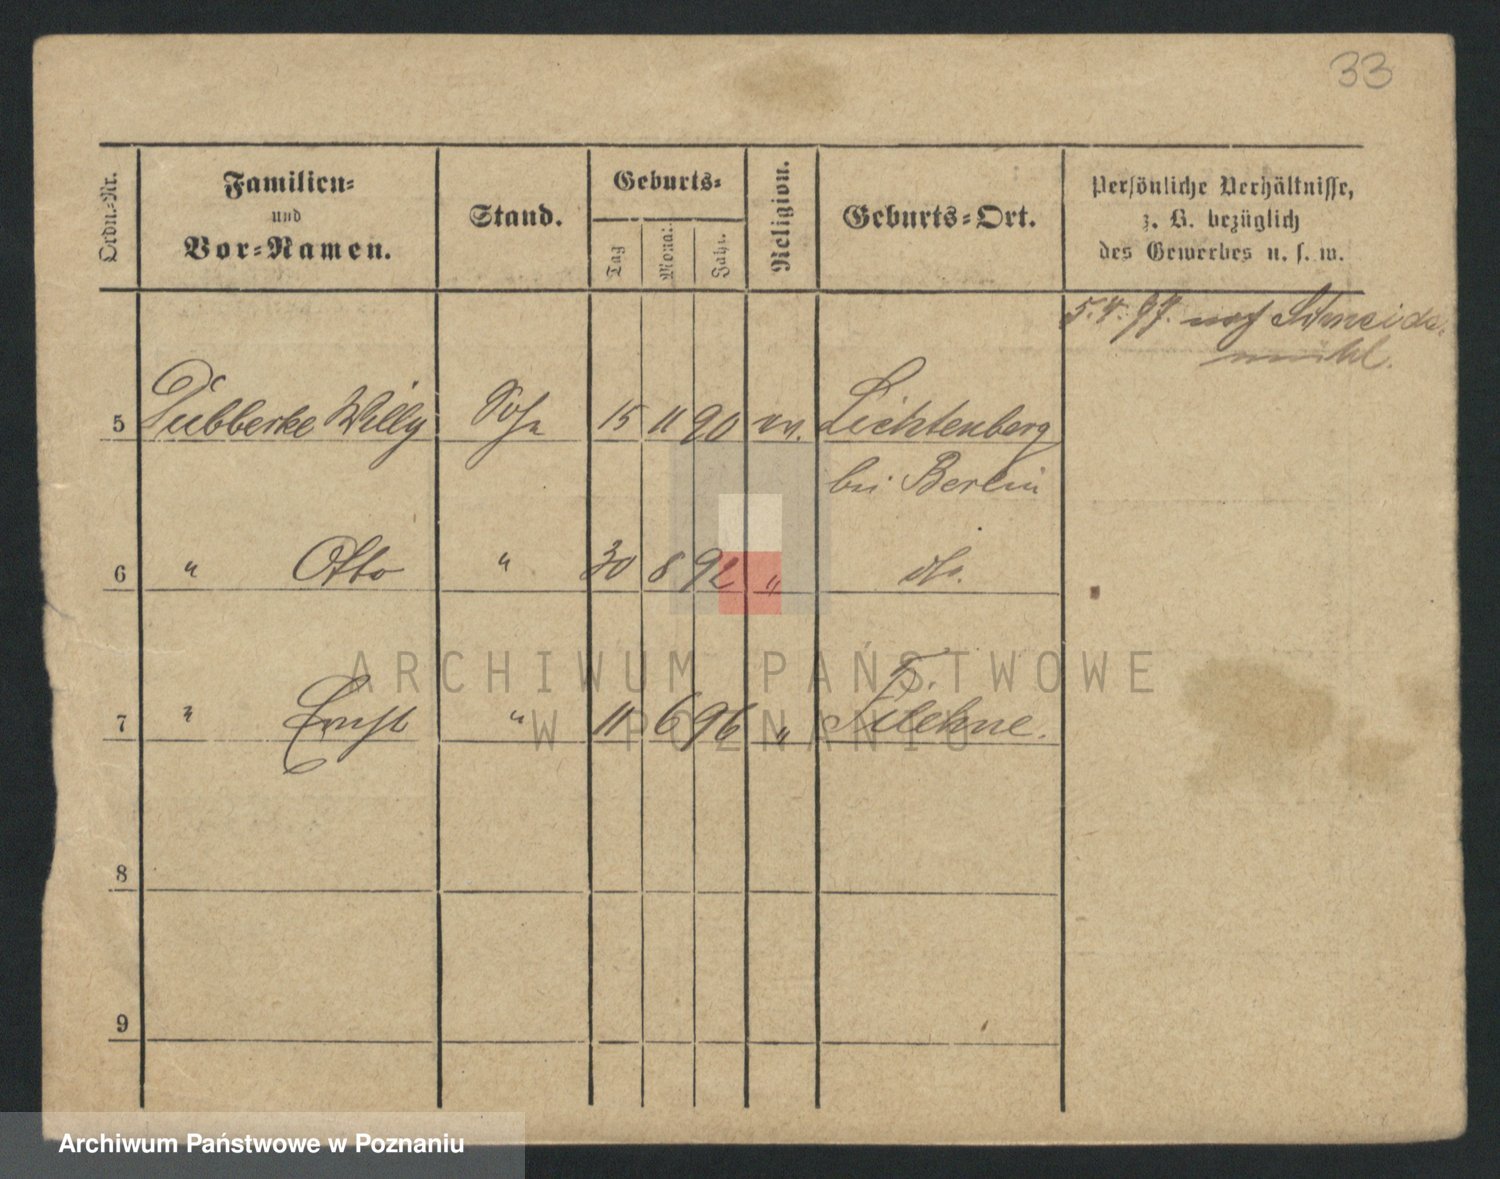 33
Ordn.-Nr.
Familien-
und
Vor-Namen.
Stand.
Geburts-
Tag
Monat
Jahr.
Religion.
Geburts-Ort.
Persönliche Verhältnisse,
z. B. bezüglich
des Gewerbes u. s. w.
5. 4. 97. nach Schneide-
mühl.
5 Dubberke Willy Sohn 15 11 90 ev. Lichtenberg
bei Berlin
6 " Otto " 30 8 92 " do.
7 " Ernst " 11 6 96 " Filehne.
8
9
ARCHIWUM PAŃSTWOWE
W POZNANIU
Archiwum Państwowe w Poznaniu